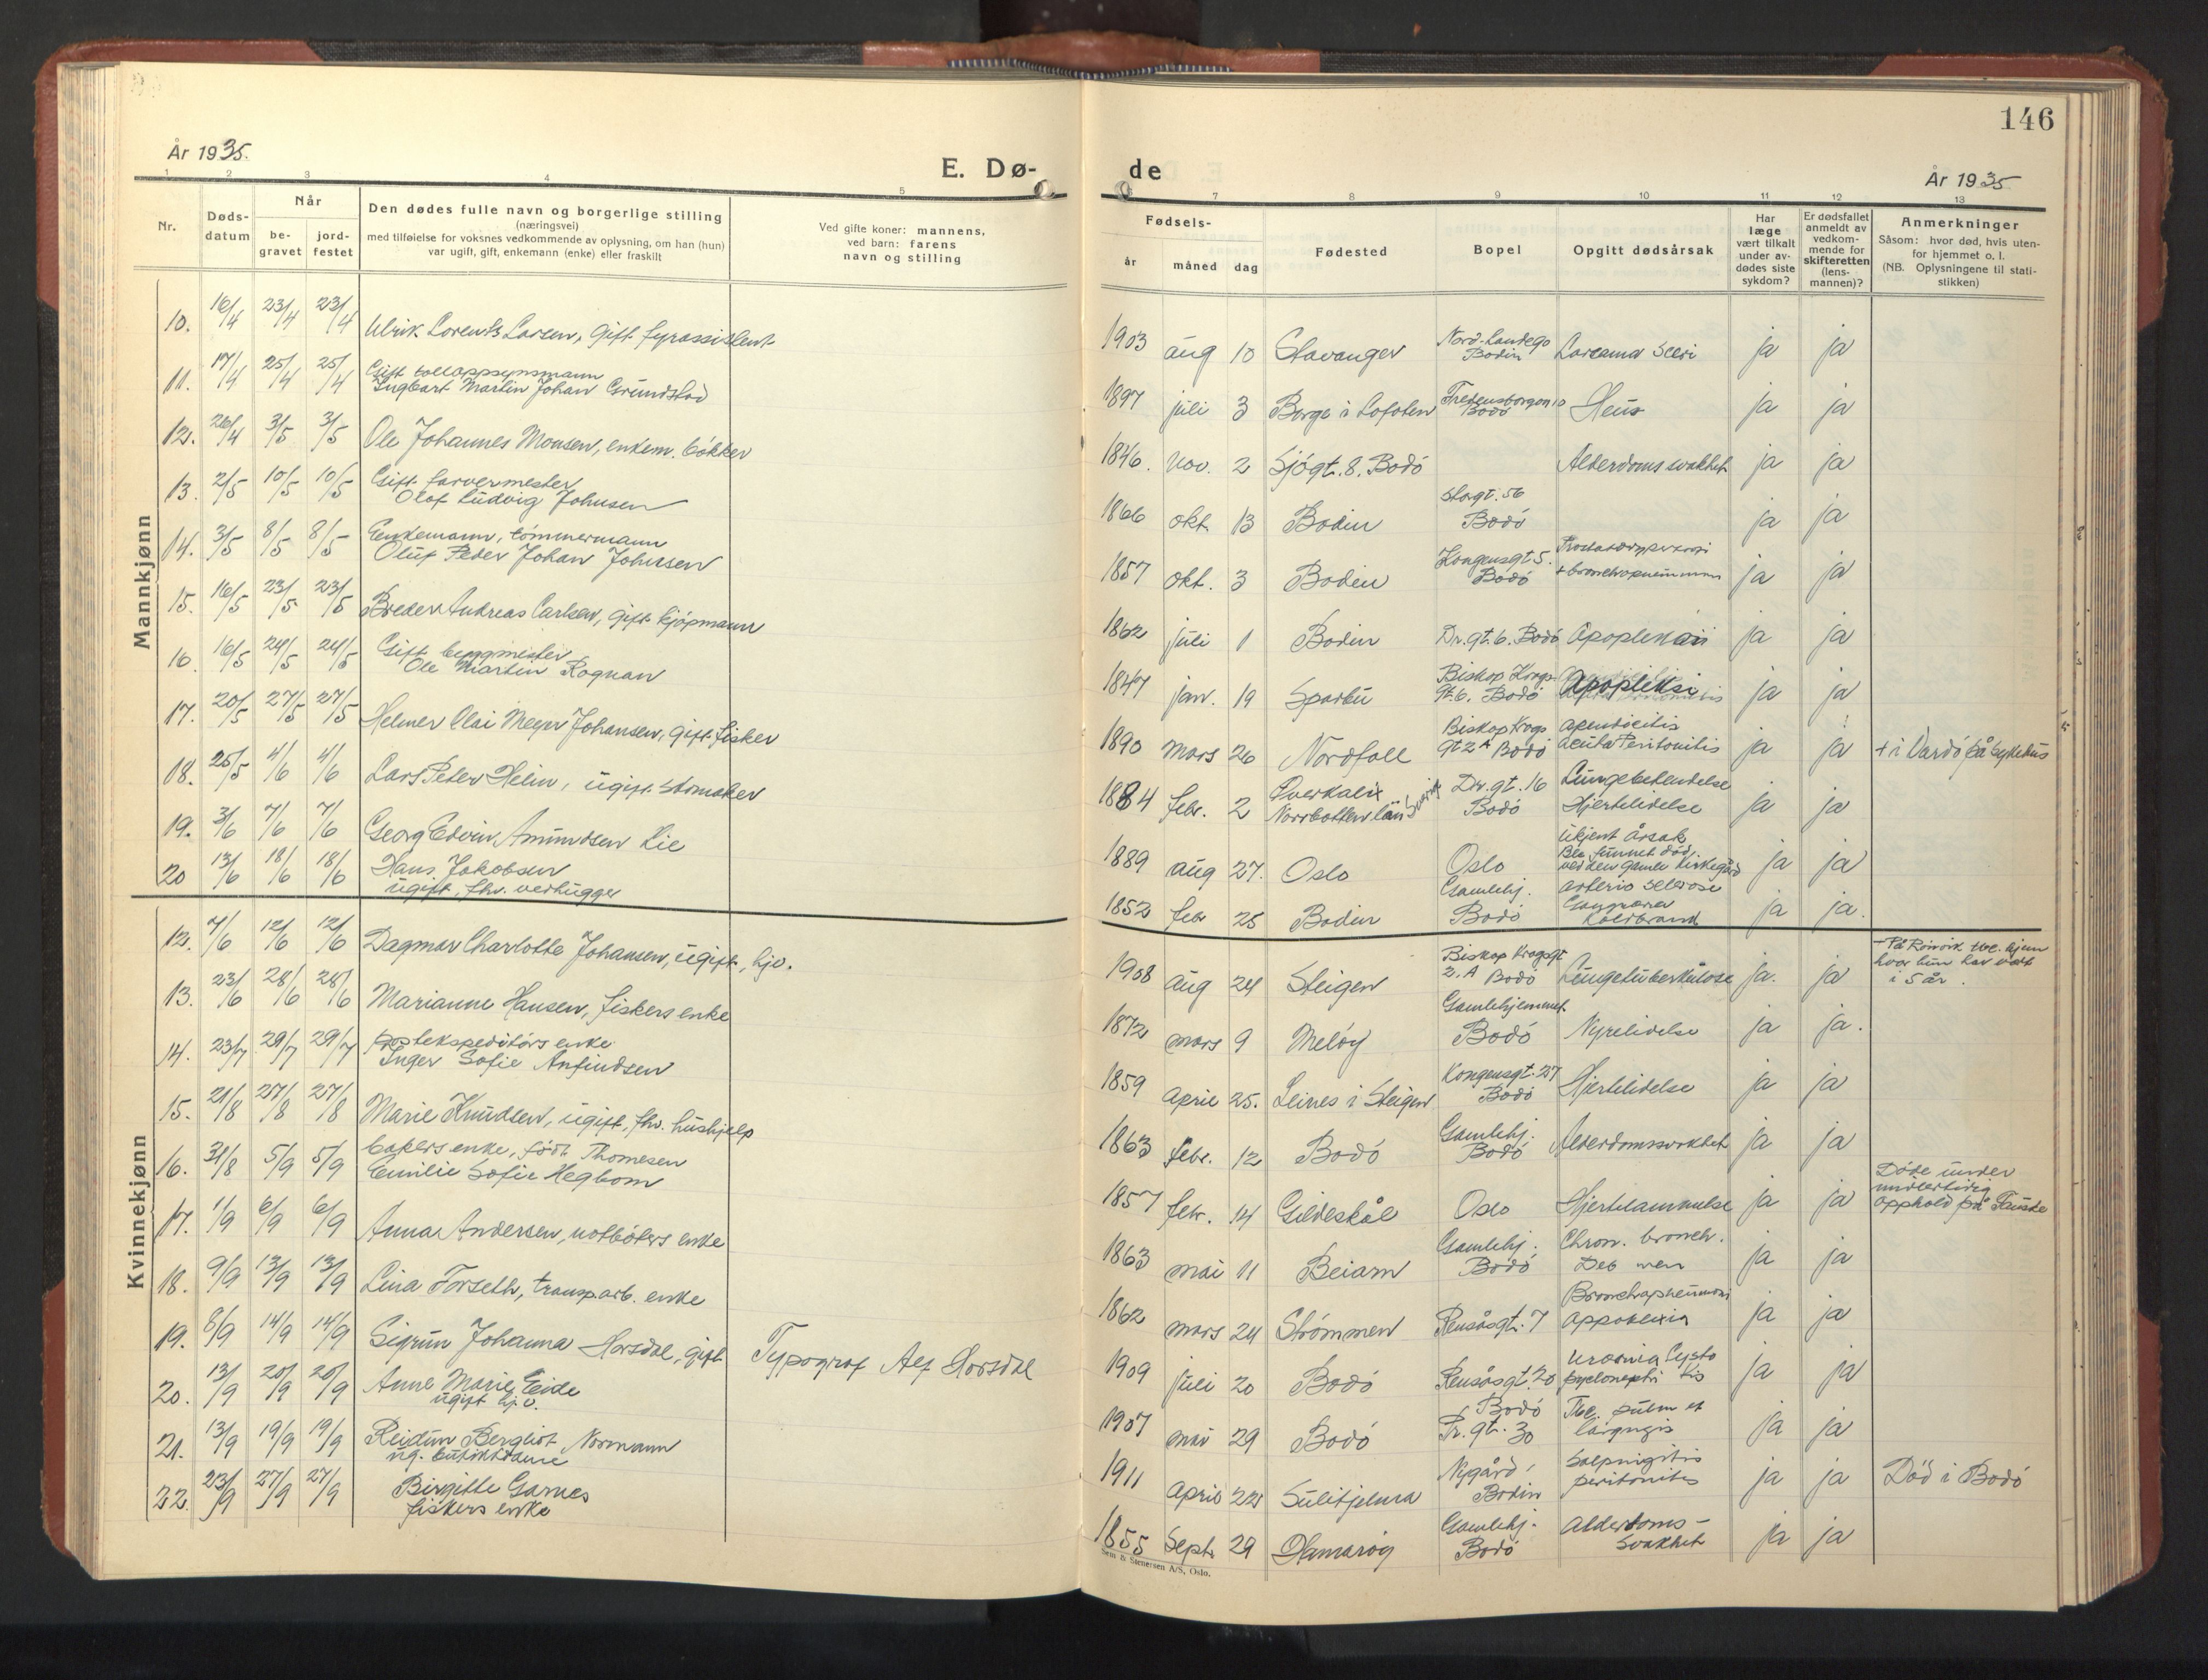 146
År 1935.
E. Dø-
de
År 1935
1 2 3 4 5
7 8 9 10 11 12 13
Nr.
Døds-
datum
Når
be-
gravet
jord-
festet
Den dødes fulle navn og borgerlige stilling
(næringsvei)
med tilføielse for voksnes vedkommende av oplysning, om han (hun)
var ugift, gift, enkemann (enke) eller fraskilt
Ved gifte koner: mannens,
ved barn: farens
navn og stilling
Fødsels-
år måned dag
Fødested
Bopel
Opgitt dødsårsak
Har
læge
vært tilkalt
under av-
dødes siste
sykdom?
Er dødsfallet
anmeldt av
vedkom-
mende for
skifteretten
(lens-
mannen)?
Anmerkninger
Såsom: hvor død, hvis uten-
for hjemmet o. l.
(NB. Oplysningene til stati-
stikken)
Mannkjønn
10. 16/4 23/4 23/4 Ulrik Lorents Larsen, gift fyrassistent
1903 aug 10 Stavanger
Bodin
ja ja
11. 17/4 25/4 25/4 Gift tolloppsynsmann
Ingbart Martin Johan Grundstad
1897 juli 3 Borge i Lofoten
Bodö
ja ja
12. 26/4 3/5 3/5 Ole Johannes Monsen, enkem. bökker
1846. nov. 2 Sjögt. 8. Bodö Alderdomssvakhet ja ja
13. 2/5 10/5 10/5 Gift farvermester
Olaf Ludvig Johnsen
1866 okt. 13 Bodin Storgt. 56
Bodö
ja ja
14. 3/5 8/5 8/5 Enkemann, tömmermann
Oluf Peder Johan Johnsen
1857 okt. 3 Bodin Kongensgt 5.
Bodö
ja ja
15. 16/5 23/5 23/5 Breder Andreas Carlsen, gift kjöpmann
1862 juli 1 Bodin Dr.gt. 6. Bodö ja ja
16. 16/5 24/5 24/5 Gift byggmester
Ole Martin Rognan
1847 jan. 19 Sparbu Biskop Krogs
gt. 6. Bodö Apopleksi ja ja
17. 20/5 27/5 27/5 Helmer Olai Meyer Johansen, gift fisker
1890 mars 26 Nordfoll Biskop Krogs
gt 2A Bodö
Apendicitis
acuta Peritonitis ja ja + i Vardö på sykehus
18. 25/5 4/6 4/6 Lars Peter Helin, ugift skomaker
1884 febr. 2 Överkalix
Norrbotten län Sverige
Dr. gt. 16
Bodö
Lungebetendelse
Hjertelidelse ja ja
19. 3/6 7/6 7/6 Georg Edvin Amundsen Lie
1889 aug 27. Oslo Oslo
Ukjent årsak
Ble funnet död
ved den gamle kirkegård ja ja
20 13/6 18/6 18/6 Hans Jakobsen
ugift, fhv. vedhugger
1852 febr 25 Bodin Gamlehj.
Bodö
arterio sclerose
Gangræna
Koldbrand ja ja.
Kvinnekjønn
12. 7/6 12/6 12/6 Dagmar Charlotte Johansen, ugift, hjv.
1908 aug 24 Steigen Biskop Krogsgt
2.A Bodö Lungetuberkulose ja. ja
hvor hun har vært
i 5 år.
13. 23/6 28/6 28/6 Marianne Hansen, fiskers enke
1872 mars 9 Melöy Gamlehjemmet
Bodö Nyrelidelse ja ja.
14. 23/7 29/7 29/7 postekspeditörs enke
Inger Sofie Anfindsen
1859 april 25. Leines i Steigen Kongensgt. 27
Bodö Hjertelidelse ja ja
15. 21/8 27/8 27/8 Marie Knudsen, ugift, fhv. hushjelp
1863 febr. 12 Bodö Gamlehj.
Bodö Alderdomssvakhet ja ja
16. 31/8 5/9 5/9 bakers enke, födt Thomesen
Emilie Sofie Hegbom
1857 febr. 14 Gildeskål Oslo Hjertelammelse ja ja
Döde under
midlertidig
opphold på Fauske
17. 1/9 6/9 6/9 Anna Andersen, notböters enke
1863 mai 11 Beiarn Gamlehj.
Bodö
Chron. bronch.
ja ja
18. 9/9 13/9 13/9 Lina Forseth, transp.arb. enke
1862 mars 24 Strömmen Rensåsgt. 7
Bronchopneumoni
ja ja
19. 8/9 14/9 14/9 Sigrun Johanna Horsdal, gift Typograf Alf Horsdal
1909 juli 20 Bodö Rensåsgt. 20
Bodö
Uræmia Cysto
pyelonephritis ja ja
20. 13/9 20/9 20/9 Anne Marie Eide
ugift hj.v.
1907 mai 29 Bodö Pr. gt. 30
Tbc. pulm et
laryngis ja ja
21. 13/9 19/9 19/9 Reidun Bergliot Normann
ug. butikkdame
1911 april 22 Sulitjelma Nygård,
Bodin
Salpingitis
peritonitis ja ja Död i Bodö
22. 23/9 27/9 27/9 Birgitte Garnes
fiskers enke
1855 Sept. 29 Hamaröy Gamlehj.
Bodö
Alderdoms-
svakhet ja ja
Sem & Stenersen A/S, Oslo.